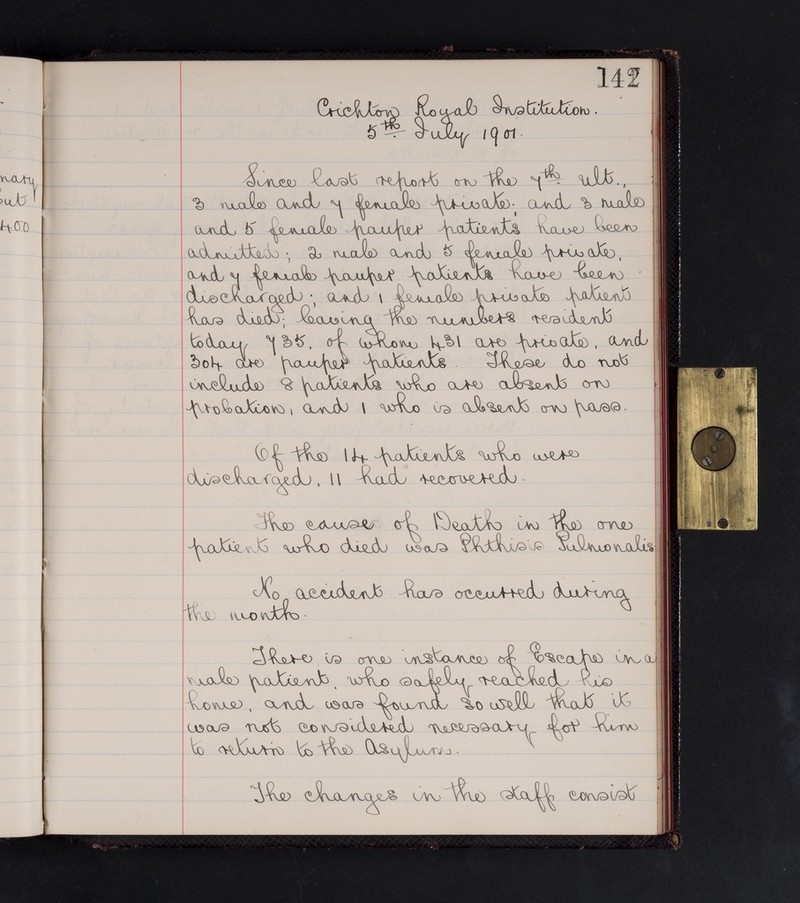 142
Crichton Royal Institution.
5th July 1901.
Since last report on the 7th ult.,
3 male and 7 female private; and 3 male
and 5 female pauper patients have been
admitted; 2 male and 5 female private,
and 7 female pauper patients have been
discharged; and 1 female private patient
has died; leaving the numbers resident
today 735, of whom 431 are private, and
304 are pauper patients. These do not
include 8 patients who are absent on
probation, and 1 who is absent on pass.
Of the 14 patients who were
discharged, 11 had recovered.
The cause of Death in the one
patient who died was Phthisis Pulmonalis
No accident has occurred during
the month.
There is one instance of Escape in a
male patient, who safely reached his
home, and was found so well that it
was not considered necessary for him
to return to the Asylum.
The changes in the staff consist